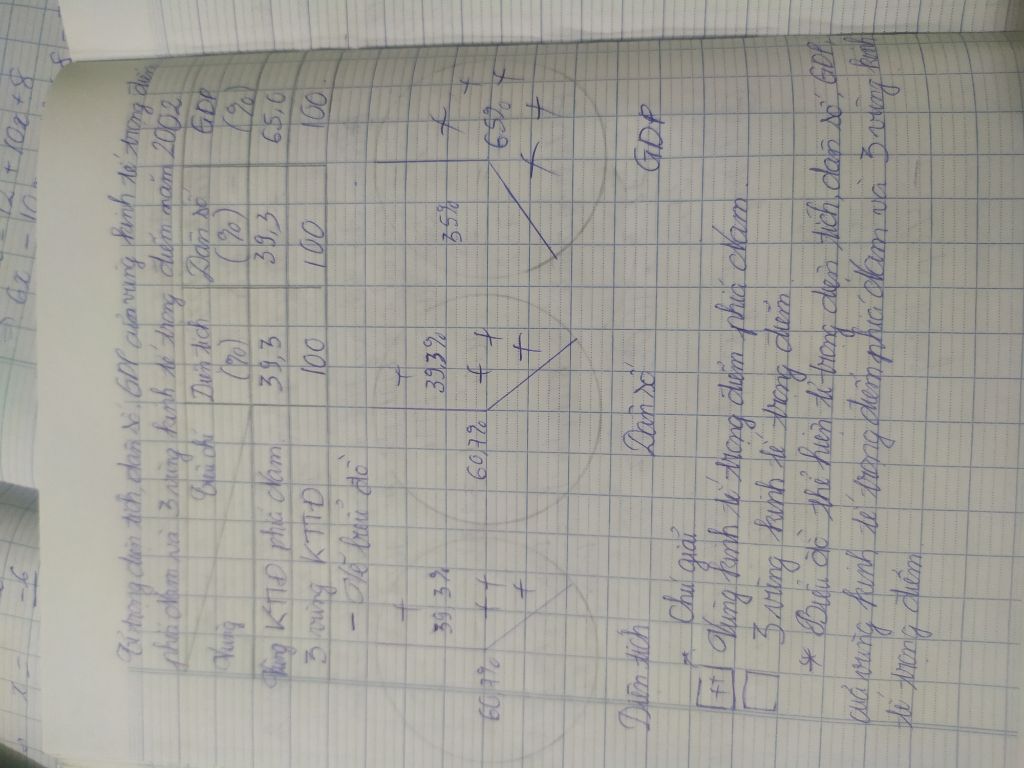 Tỉ trọng diện tích, dân số, GDP của vùng kinh tế trọng điểm
phía Nam và 3 vùng kinh tế trọng điểm năm 2002
Tiêu chí Diện tích Dân số GDP
Vùng (%) (%) (%)
Vùng KTTĐ phía Nam 39,3 39,3 65,0
3 vùng KTTĐ 100 100 100
- Vẽ biểu đồ
39,3% 39,3% 35%
60,7% 60,7% 65%
Diện tích Dân số GDP
* Chú giải
++ Vùng kinh tế trọng điểm phía Nam
3 vùng kinh tế trọng điểm
* Biểu đồ thể hiện tỉ trọng diện tích, dân số, GDP
của vùng kinh tế trọng điểm phía Nam và 3 vùng kinh
tế trọng điểm